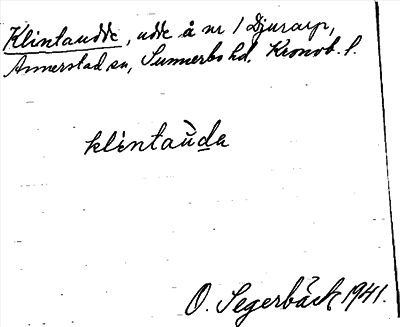 Klintaudde, udde å nr 1 Djurarp,
Annerstad sn, Sunnerbo hd. Kronob. l.
klintau̇da
O. Segerbäck 1941.